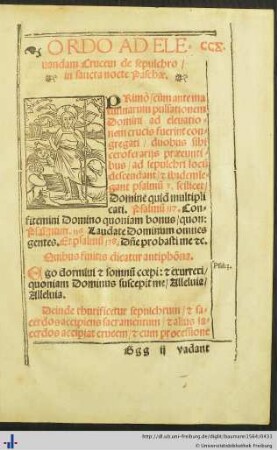 ORDO AD ELE- CCX.
uandam Crucem de sepulchro/
in sancta nocte Paschæ.
PRimò/ cùm ante ma
tutinarum pulsationem
Domini ad eleuatio-
nem crucis fuerint con
gregati / duobus sibi
ceroferarijs præeunti
bus/ ad sepulchri locū
descendant/ &
psalmū
Domine quid multipli
cati. Psalmū Con-
fitemini Domino quoniam bonus/quon:
Psalmum Laudate Dominum omnes
gentes. Et psalmū Dñe probasti me &c.
Quibus finitis dicatur antiphōna.
Ego dormiui & somnū cœpi: & exurrexi/
quoniam Dominus suscepit me/ Alleluia/
Alleluia.
Deinde thurificetur sepulchrum/ & sa-
cerdos accipiens sacramentum/ & alius sa-
cerdos accipiat crucem/ & cum processione
Ggg ij vadant
http://dl.ub.uni-freiburg.de/diglit/baumann1564/0431
© Universitätsbibliothek Freiburg